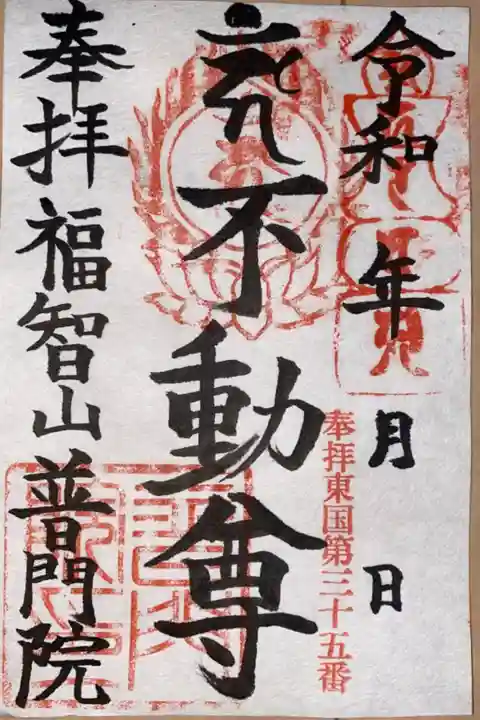 令和 年 月 日
奉拝東国第三十五番
不動尊
奉拝 福智山普門院